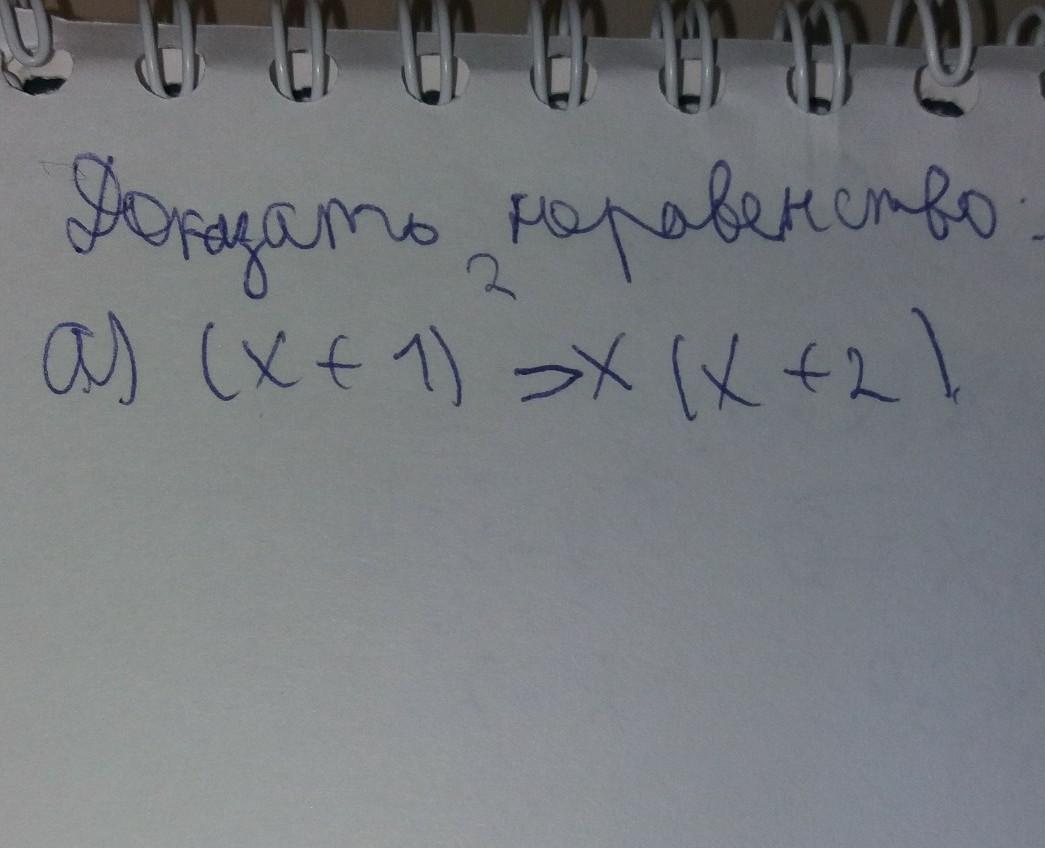 Доказать неравенство:
а) (x + 1)² > x (x + 2)